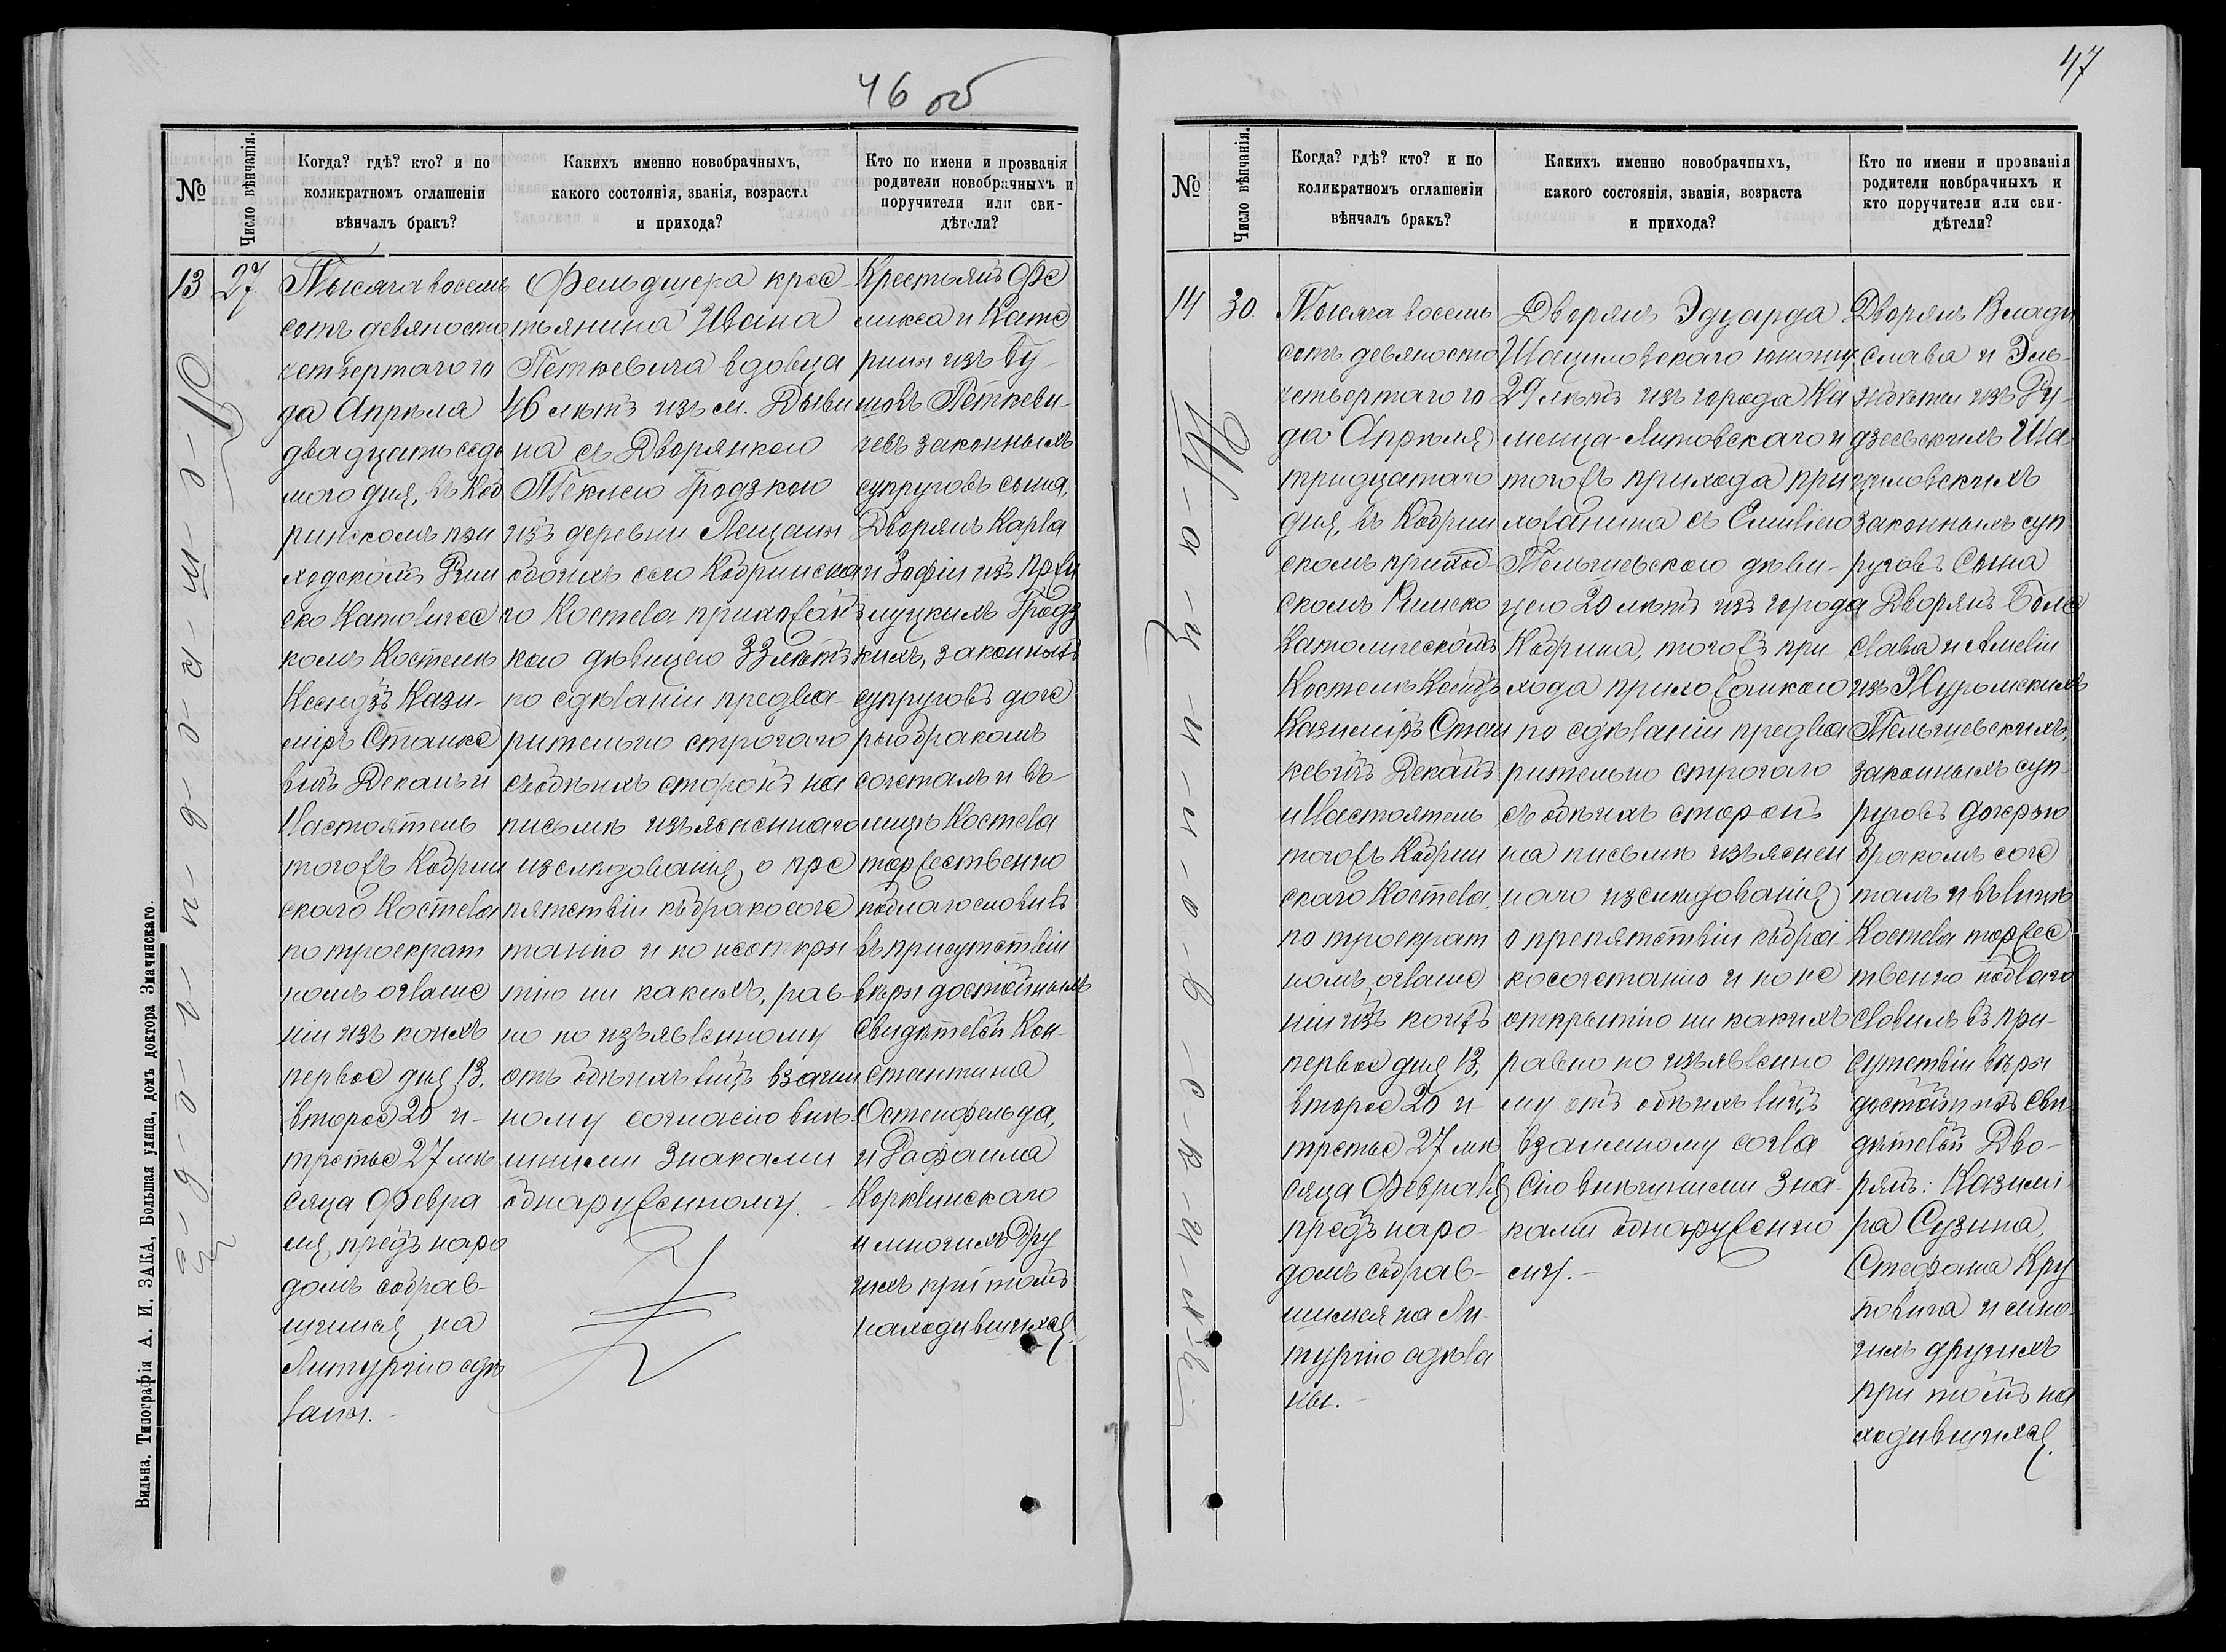 46 об
№
Число вѣнчанія.
Когда? гдѣ? кто? и по
коликратномъ оглашеніи
вѣнчалъ бракъ?
Какихъ именно новобрачныхъ,
какого состоянія, званія, возраста
и прихода?
Кто по имени и прозванія
родители новобрачныхъ и
поручители или сви-
дѣтели?
13
27
Тысяча восемь
сотъ девяносто
четвертаго го
да Апрѣля
двадцать седь
мого дня, въ Коб
ринскомъ при
ходскомъ Рим
ско Католичес
комъ Костелѣ
Ксендзъ Кази-
міръ Станке
вичъ Деканъ и
Настоятель
тогожъ Кобрин
скаго Костела
по троекрат
номъ оглаше
ніи изъ коихъ
первое дня 13.
второе 20 и-
третье 27 мѣ
сяца Февра
ля, предъ наро
домъ собрав-
шимся на
Литургію сдѣ
ланы.-
Фельдшера крес-
тьянина Ивана
Петкевича вдовца
46 лѣтъ изъ м. Дыви
на съ Дворянкою
Теклею Гродзкою
изъ деревни Лещанки
обоихъ сего Кобринска
го Костела прихожанъ
кою дѣвицею 33 лѣтъ
по сдѣланіи предва-
рительно строгаго
съобѣихъ сторонъ на
письмѣ изъясненнаго
изслѣдованія о пре
пятствіи къ бракосоче
танію и по неоткры
тію ни какихъ, рав-
но по изъявленному
отъ обѣихъ лицъ взаим
ному согласію внѣ-
шними знаками
обнаруженному.-
Крестьянъ Фе
ликса и Кате
рины изъ Бу-
Петкеви-
чевъ законныхъ
супруговъ сына,
Дворянъ Карла
и Зофіи изъ
Гродз
кихъ, законныхъ
супруговъ доче
рью бракомъ
сочеталъ и въ-
лицѣ Костела
торжественно
поблагословилъ
въ присутствіи
вѣры достойныхъ
Свидѣтелей Кон-
стантина
Остенфельда,
и Рафаила
и многихъ дру
гихъ при томъ
находившихся.
Вильна. Типографія А. И. ЗАКА, Большая улица, домъ доктора Змачинскаго.
47
№
Число вѣнчанія.
Когда? гдѣ? кто? и по
коликратномъ оглашеніи
вѣнчалъ бракъ?
Какихъ именно новобрачныхъ,
какого состоянія, званія, возраста
и прихода?
Кто по имени и прозванія
родители новбрачныхъ и
кто поручители или сви-
дѣтели?
14
30.
Тысяча восемь
сотъ девяносто
четвертаго го
да Апрѣля
тридцатаго
дня, въ Кобрин
скомъ приход-
скомъ Римско
Католическомъ
Костелѣ Ксендзъ
Казиміръ Стан
кевичъ Деканъ
и Настоятель
тогожъ Кобрин
скаго Костела.
по троекрат
номъ оглаше
ніи изъ коихъ
первое дня 13,
второе 20 и-
третье 27 мѣ
сяца Февраля
предъ наро-
домъ собрав-
шимся на Ли-
тургію сдѣла
ны.-
Дворянъ Эдуарда
Шациловскаго юношу
29 лѣтъ изъ города Ка
менца-Литовскаго и
тогожъ прихода при
хожанина съ Емиліею
Тельшевскою дѣви-
цею 20 лѣтъ изъ города
Кобрина, тогожъ при
хода прихожанкою
по сдѣланіи предва
рительно строгаго
съ обѣихъ сторонъ
на письмѣ изъяснен
наго изслѣдованія
о препятствіи къ бра
косочетанію и по не
открытію ни какихъ
равно по изъявленно
му отъ обѣихъ лицъ
взаимному согла
сію внѣшними зна-
ками обнаруженно
му.-
Дворянъ Влади
слава и Эль-
жбѣты изъ Ру-
дзеевскихъ Ша
циловскихъ
законныхъ суп
руговъ Сына
Дворянъ Боле
слава и Амеліи
изъ Журомскихъ
Тельшевскихъ,
законныхъ суп-
руговъ дочерью
бракомъ соче
талъ и въ лицѣ
Костела торжес
твенно поблаго
словилъ въ при-
сутствіи вѣры
достойныхъ сви
дѣтелей Дво-
рянъ: Казими
ра Сузина,
Стефана Кру
повича и мно-
гихъ другихъ
при томъ на
ходившихся.